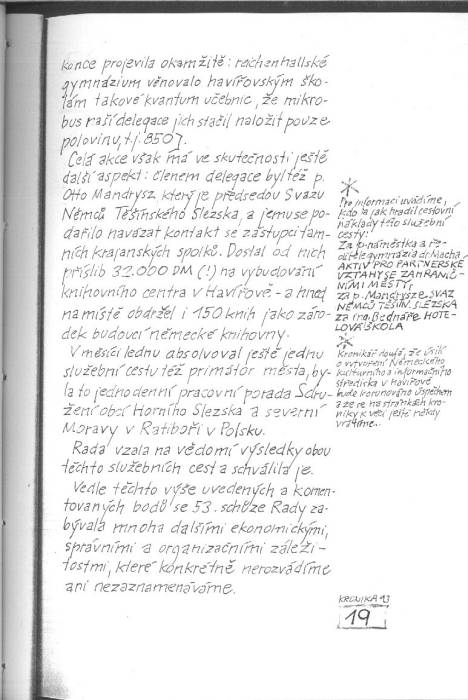 konce projevila okamžitě: reichenhallské
gymnázium věnovalo havířovským ško-
lám takové kvantum učebnic, že mikro-
bus naší delegace jich stačil naložit pouze
polovinu, t.j. 850].
Celá akce však má ve skutečnosti ještě
další aspekt: členem delegace byl též p.
Otto Mandrysz, který je předsedou Svazu
Němců Těšínského Slezska, a jemu se po-
dařilo navázat kontakt se zástupci tam-
ních krajanských spolků. Dostal od nich
příslib 32.000 DM (!) na vybudování
knihovního centra v Havířově - a hned
na místě obdržel i 150 knih jako záro-
dek budoucí německé knihovny.
V měsíci lednu absolvoval ještě jednu
služební cestu též primátor města, by-
la to jednodenní pracovní porada Sdru-
žení obcí Horního Slezska a severní
Moravy v Ratiboři v Polsku.
Rada vzala na vědomí výsledky obou
těchto služebních cest a schválila je.
Vedle těchto výše uvedených a komen-
tovaných bodů se 53. schůze Rady za-
bývala mnoha dalšími ekonomickými,
správními a organizačními záleži-
tostmi, které konkrétně nerozvádíme
ani nezaznamenáváme.
*
Pro informaci uvádíme,
kdo a jak hradil cestovní
náklady této služební
cesty:
Za p. náměstka a ře-
ditele gymnázia dr. Macha
AKTIV PRO PARTNERSKÉ
VZTAHY SE ZAHRANIČ-
NÍMI MĚSTY,
za p. Mandrysze SVAZ
NĚMCŮ TĚŠÍN. SLEZSKA
za ing. Bednáře HOTE-
LOVÁ ŠKOLA
*
Kronikář doufá, že úsilí
o vytvoření Německého
kulturního a informačního
střediska v Havířově
bude korunováno úspěchem
a že se na stránkách kro-
niky k věci ještě někdy
vrátíme..
KRONIKA 93
19